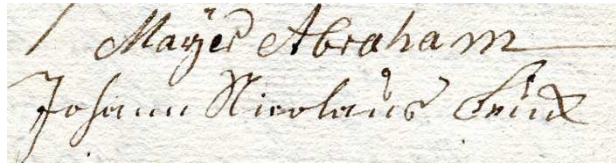 Mayer Abraham
Johann Nicolaus